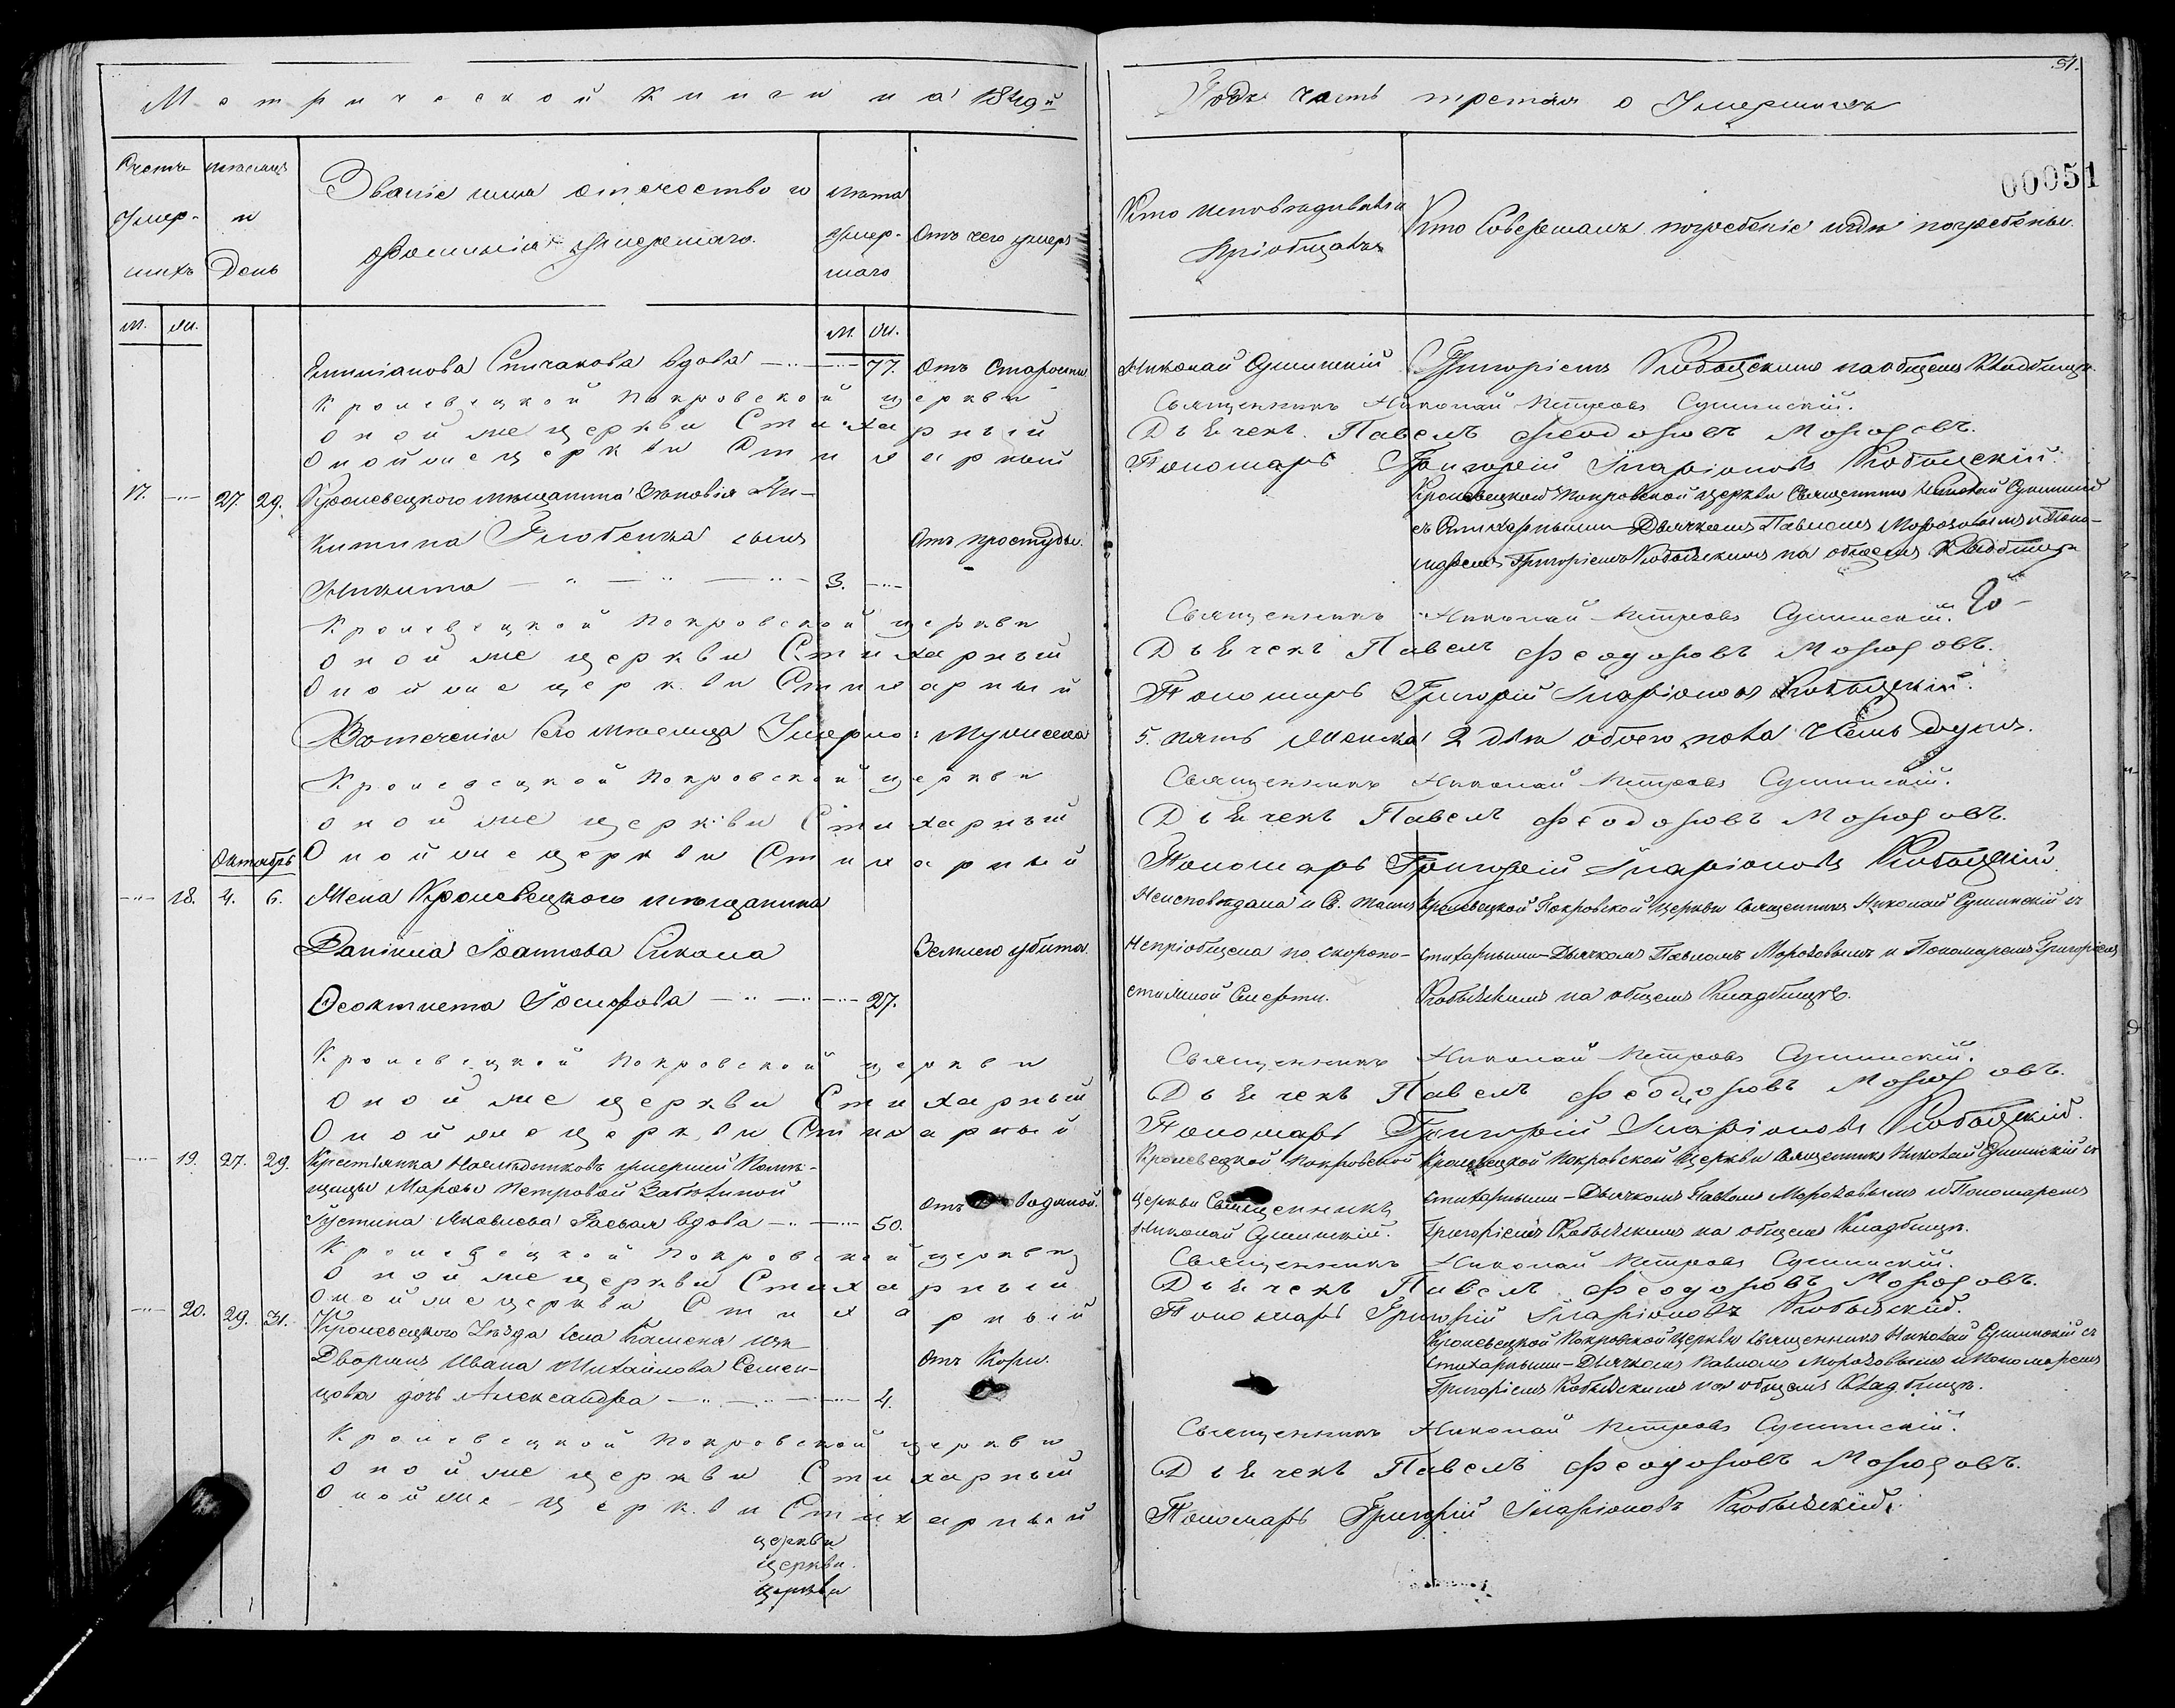 Метрической Книги на 1849й
Годъ часть третая о Умершихъ
51.
00051
Счетъ Умер- шихъ
Месяцъ и День
Званіе имя отечество и Фамилія умершаго.
Лета Умер- шаго
Отъ чего умеръ
Кто исповедывалъ и Пріобщалъ
Кто Совершалъ погребеніе и где погребены.
М. Ж.
М. Ж.
Емиліанова Спичакова вдова 77. Отъ Старости
Николай Сушинскій Григоріемъ Кобыжскимъ на общемъ Кладбище.
Кролевецкой Покровской церкви Священникъ Николай Петровъ Сушинскій.
Оной же церкви Стихарный Дьячекъ Павелъ Феодоровъ Морозовъ.
Оной же церкви Стихарный Пономарь Григорій Иларіоновъ Кобыжскій.
17. 27. 29. Кролевецкого мещанина Зиновія Ни-
китина сынъ Отъ простуды.
Никита 3.
Кролевецкой Покровской церкви Священникъ Николай Сушинскій
съ Стихарными Дьячкомъ Павломъ Морозовымъ и Поно-
маремъ Григоріемъ Кобыжскимъ на общемъ Кладбище
Кролевецкой Покровской церкви Священникъ Николай Петровъ Сушинскій.
Оной же церкви Стихарный Дьячекъ Павелъ Феодоровъ Морозовъ.
Оной же церкви Стихарный Пономарь Григорій Иларіоновъ Кобыжскій.
Втеченіи Сего месяца Умерло: Мужеска 5. пять Женска 2 две обоего пола семь душъ.
Кролевецкой Покровской церкви Священникъ Николай Петровъ Сушинскій.
Оной же церкви Стихарный Дьячекъ Павелъ Феодоровъ Морозовъ.
Октябрь
Оной же церкви Стихарный Пономарь Григорій Иларіоновъ Кобыжскій.
18. 4. 6. Жена Кролевецкого мещанина
Даніила Іоаннова Сикала Землею убита.
Феоктиста Іосифова 27.
Неисповедана и Св. таинъ
Непріобщена по скоропо-
стижной Смерти.
Кролевецкой Покровской Церкви Священникъ Николай Сушинскій съ
стихарными Дьячкомъ Павломъ Морозовымъ и Пономаремъ Григоріемъ
Кобыжскимъ на общемъ Кладбище.
Кролевецкой Покровской церкви Священникъ Николай Петровъ Сушинскій.
Оной же церкви Стихарный Дьячекъ Павелъ Феодоровъ Морозовъ.
Оной же церкви Стихарный Пономарь Григорій Иларіоновъ Кобыжскій.
19. 27. 29. Крестьянка Наследниковъ умершей Поме-
щицы Марфы Петровой Забелиной Отъ водяной.
Іустина Яковлева Гаевая вдова 50.
Кролевецкой Покровской
Церкви Священникъ
Николай Сушинскій.
Кролевецкой Покровской Церкви Священникъ Николай Сушинскій съ
стихарными Дьячкомъ Павломъ Морозовымъ и Пономаремъ
Григоріемъ Кобыжскимъ на общемъ Кладбище.
Кролевецкой Покровской церкви Священникъ Николай Петровъ Сушинскій.
Оной же церкви Стихарный Дьячекъ Павелъ Феодоровъ Морозовъ.
Оной же церкви Стихарный Пономарь Григорій Иларіоновъ Кобыжскій.
20. 29. 31. Кролевецкого Уезда села Камена изъ
Дворянъ Ивана Михайлова Семен-
цова дочь Александра 4. Отъ Кори.
Кролевецкой Покровской Церкви Священникъ Николай Сушинскій съ
Стихарными Дьячкомъ Павломъ Морозовымъ и Пономаремъ
Григоріемъ Кобыжскимъ на общемъ Кладбище.
Кролевецкой Покровской церкви Священникъ Николай Петровъ Сушинскій.
Оной же церкви Стихарный Дьячекъ Павелъ Феодоровъ Морозовъ.
Оной же церкви Стихарный Пономарь Григорій Иларіоновъ Кобыжскій.
церкви
церкви.
церкви